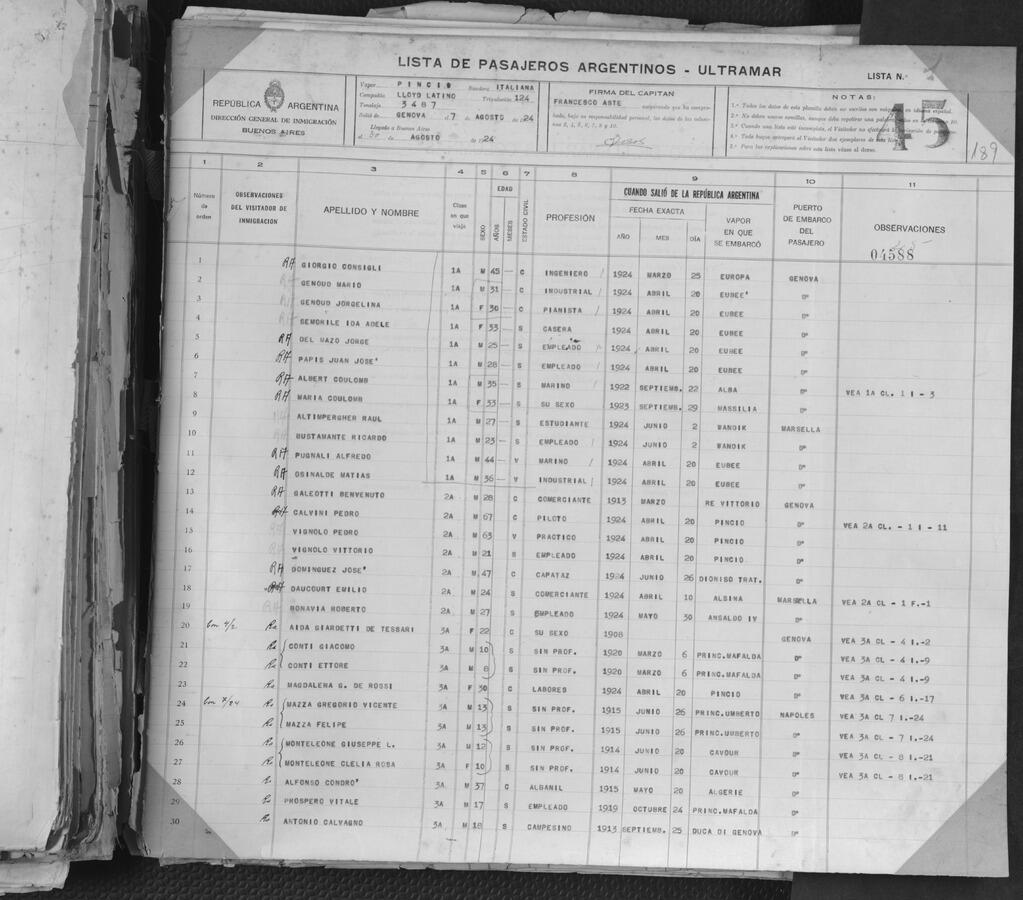 LISTA DE PASAJEROS ARGENTINOS - ULTRAMAR
LISTA N.º
REPÚBLICA ARGENTINA
DIRECCIÓN GENERAL DE INMIGRACIÓN
BUENOS AIRES
Vapor PINCIO Bandera ITALIANA
Compañía LLOYD LATINO Tripulación 124
Tonelaje 3487
Salió de GENOVA el 7 AGOSTO de 1924
Llegado a Buenos Aires
el 30 de AGOSTO de 1924
FIRMA DEL CAPITAN
FRANCESCO ASTE
NOTAS:
45
189
1 2 3 4 5 6 7 8 9 10 11
Número de orden
OBSERVACIONES DEL VISITADOR DE INMIGRACIÓN
APELLIDO Y NOMBRE
Clase en que viaja
SEXO
EDAD
AÑOS
MESES
ESTADO CIVIL
PROFESIÓN
CUANDO SALIÓ DE LA REPÚBLICA ARGENTINA
FECHA EXACTA
AÑO MES DÍA
VAPOR EN QUE SE EMBARCÓ
PUERTO DE EMBARCO DEL PASAJERO
OBSERVACIONES
04588
1 RA GIORGIO CONSIGLI 1A M 45 — C INGENIERO 1924 MARZO 25 EUROPA GENOVA
2 GENOUD MARIO 1A M 31 — C INDUSTRIAL 1924 ABRIL 20 EUBEE' Dº
3 GENOUD JORGELINA 1A F 30 — C PIANISTA 1924 ABRIL 20 EUBEE Dº
4 SEMORILE IDA ADELE 1A F 33 — S CASERA 1924 ABRIL 20 EUBEE Dº
5 RA DEL MAZO JORGE 1A M 25 — S EMPLEADO 1924 ABRIL 20 EUBEE Dº
6 RA PAPIS JUAN JOSE' 1A M 28 — S EMPLEADO 1924 ABRIL 20 EUBEE Dº
7 RA ALBERT COULOMB 1A M 35 — S MARINO 1922 SEPTIEMB. 22 ALBA Dº VEA 1A CL. 1 I - 3
8 RA MARIA COULOMB 1A F 33 — S SU SEXO 1923 SEPTIEMB. 29 MASSILIA Dº
9 ALTIMPERGHER RAUL 1A M 27 — S ESTUDIANTE 1924 JUNIO 2 MANDIK MARSELLA
10 BUSTAMANTE RICARDO 1A M 23 — S EMPLEADO 1924 JUNIO 2 MANDIK Dº
11 RA PUGNALI ALFREDO 1A M 44 — V MARINO 1924 ABRIL 20 EUBEE Dº
12 RA OSINALDE MATIAS 1A M 36 — V INDUSTRIAL 1924 ABRIL 20 EUBEE Dº
13 RA GALEOTTI BENVENUTO 2A M 28 C COMERCIANTE 1913 MARZO RE VITTORIO GENOVA
14 RA CALVINI PEDRO 2A M 67 C PILOTO 1924 ABRIL 20 PINCIO Dº VEA 2A CL. - 1 I - 11
15 VIGNOLO PEDRO 2A M 63 V PRACTICO 1924 ABRIL 20 PINCIO Dº
16 VIGNOLO VITTORIO 2A M 21 S EMPLEADO 1924 ABRIL 20 PINCIO Dº
17 RA DOMINGUEZ JOSE' 2A M 47 C CAPATAZ 1924 JUNIO 26 DIONISO TRAT. Dº
18 RA DAUCOURT EMILIO 2A M 24 S COMERCIANTE 1924 ABRIL 10 ALSINA MARSELLA VEA 2A CL - 1 F.-1
19 BONAVIA ROBERTO 2A M 27 S EMPLEADO 1924 MAYO 30 ANSALDO IV Dº
20 Ra AIDA GIARDETTI DE TESSARI 3A F 22 C SU SEXO 1908 GENOVA VEA 3A CL - 4 I.-2
21 Ra CONTI GIACOMO 3A M 10 S SIN PROF. 1920 MARZO 6 PRINC.MAFALDA Dº VEA 3A CL - 4 I.-9
22 Ra CONTI ETTORE 3A M 8 S SIN PROF. 1920 MARZO 6 PRINC.MAFALDA Dº VEA 3A CL - 4 I.-9
23 Ra MAGDALENA G. DE ROSSI 3A F 30 C LABORES 1924 ABRIL 20 PINCIO Dº VEA 3A CL - 6 I.-17
24 Ra MAZZA GREGORIO VICENTE 3A M 13 S SIN PROF. 1915 JUNIO 26 PRINC.UMBERTO NAPOLES VEA 3A CL 7 I.-24
25 Ra MAZZA FELIPE 3A M 13 S SIN PROF. 1915 JUNIO 26 PRINC.UMBERTO Dº VEA 3A CL - 7 I.-24
26 Ra MONTELEONE GIUSEPPE L. 3A M 12 S SIN PROF. 1914 JUNIO 20 CAVOUR Dº VEA 3A CL - 8 I.-21
27 Ra MONTELEONE CLELIA ROSA 3A F 10 S SIN PROF. 1914 JUNIO 20 CAVOUR Dº VEA 3A CL - 8 I.-21
28 Ra ALFONSO CONDRO' 3A M 37 C ALBANIL 1915 MAYO 20 ALGERIE Dº
29 Ra PROSPERO VITALE 3A M 17 S EMPLEADO 1919 OCTUBRE 24 PRINC.MAFALDA Dº
30 Ra ANTONIO CALVAGNO 3A M 18 S CAMPESINO 1913 SEPTIEMB. 25 DUCA DI GENOVA Dº